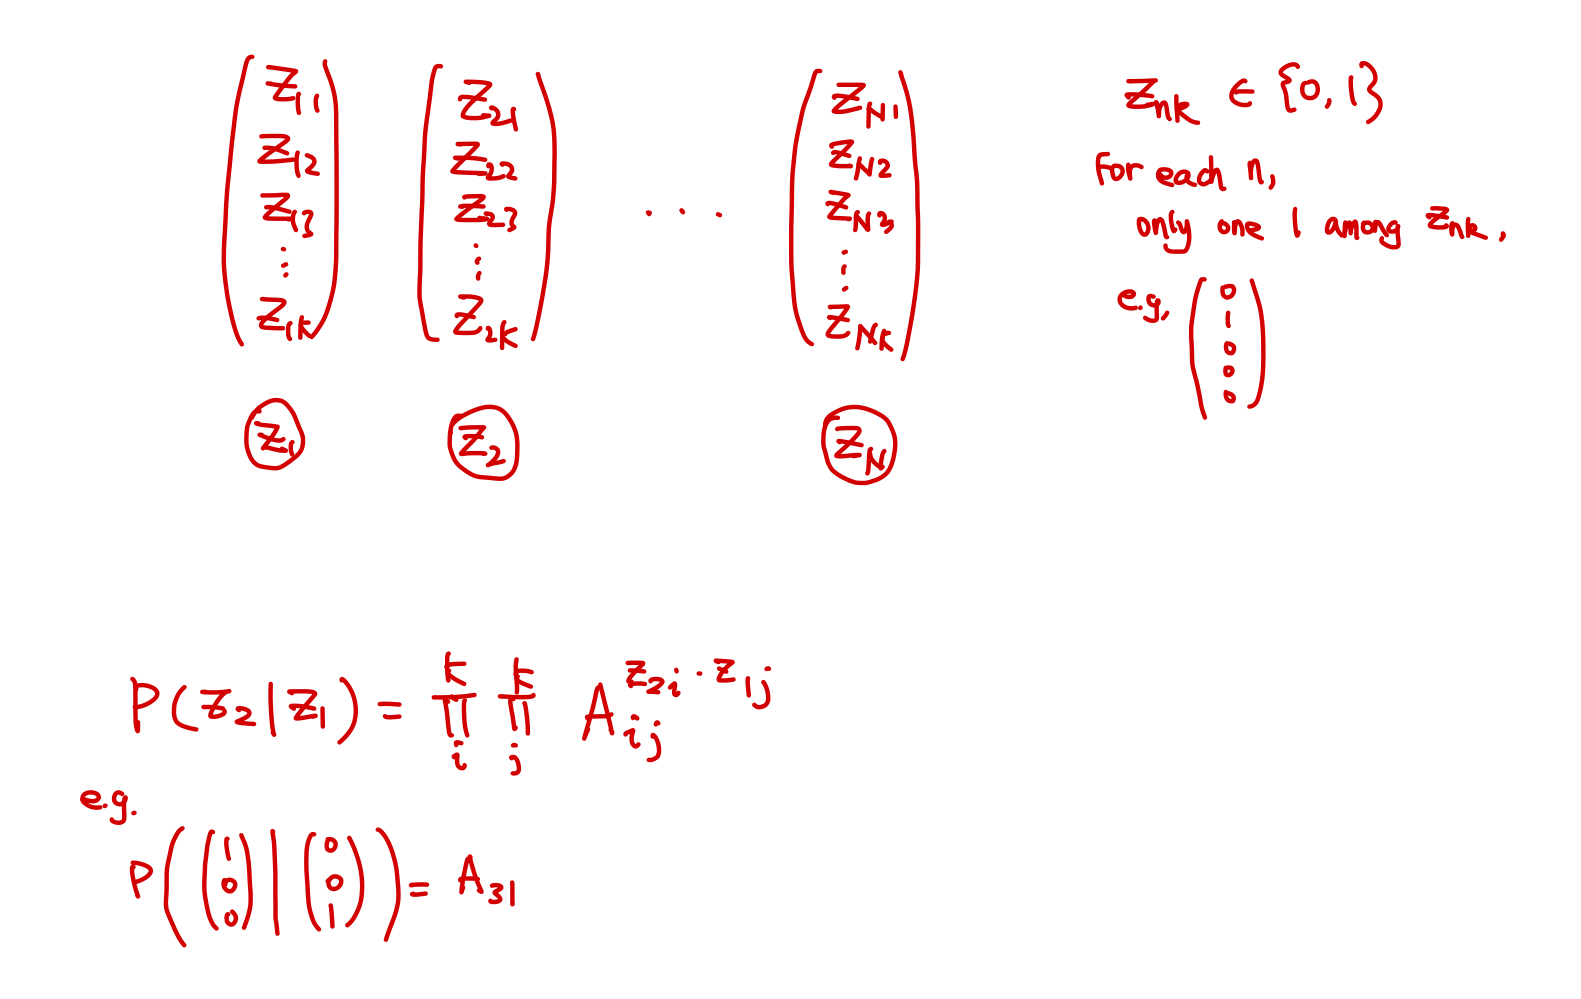 ( Z₁₁ ) ( Z₂₁ ) ( Z_N1 )
( Z₁₂ ) ( Z₂₂ ) ( Z_N2 )
( Z₁₃ ) ( Z₂₃ ) ... ( Z_N3 )
( ⋮ ) ( ⋮ ) ( ⋮ )
( Z₁K ) ( Z₂K ) ( Z_NK )
Z₁ Z₂ Z_N
Z_nk ∈ {0, 1}
For each n,
only one 1 among Z_nk,
e.g, ( 0 1 0 0 0 )
P(Z₂|Z₁) = ∏_i^K ∏_j^K A_ij^(Z_2i · Z_1j)
e.g.
P( (1 0 0) | (0 0 1) ) = A₃₁